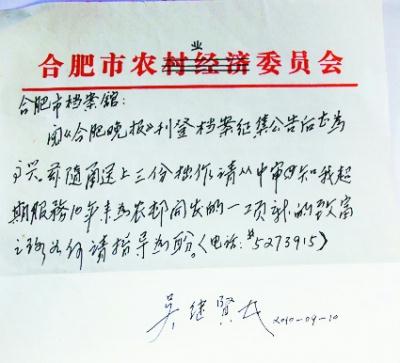 业
合肥市农村经济委员会
合肥市档案馆:
阅《合肥晚报》刊登档案征集公告后甚为
高兴。兹随函送上三份拙作,请从中审阅知我超
期服务10年来为农村开发的一项新的致富
之路如何请指导为盼。(电话:#5273915)
吴继贤
2010-09-10